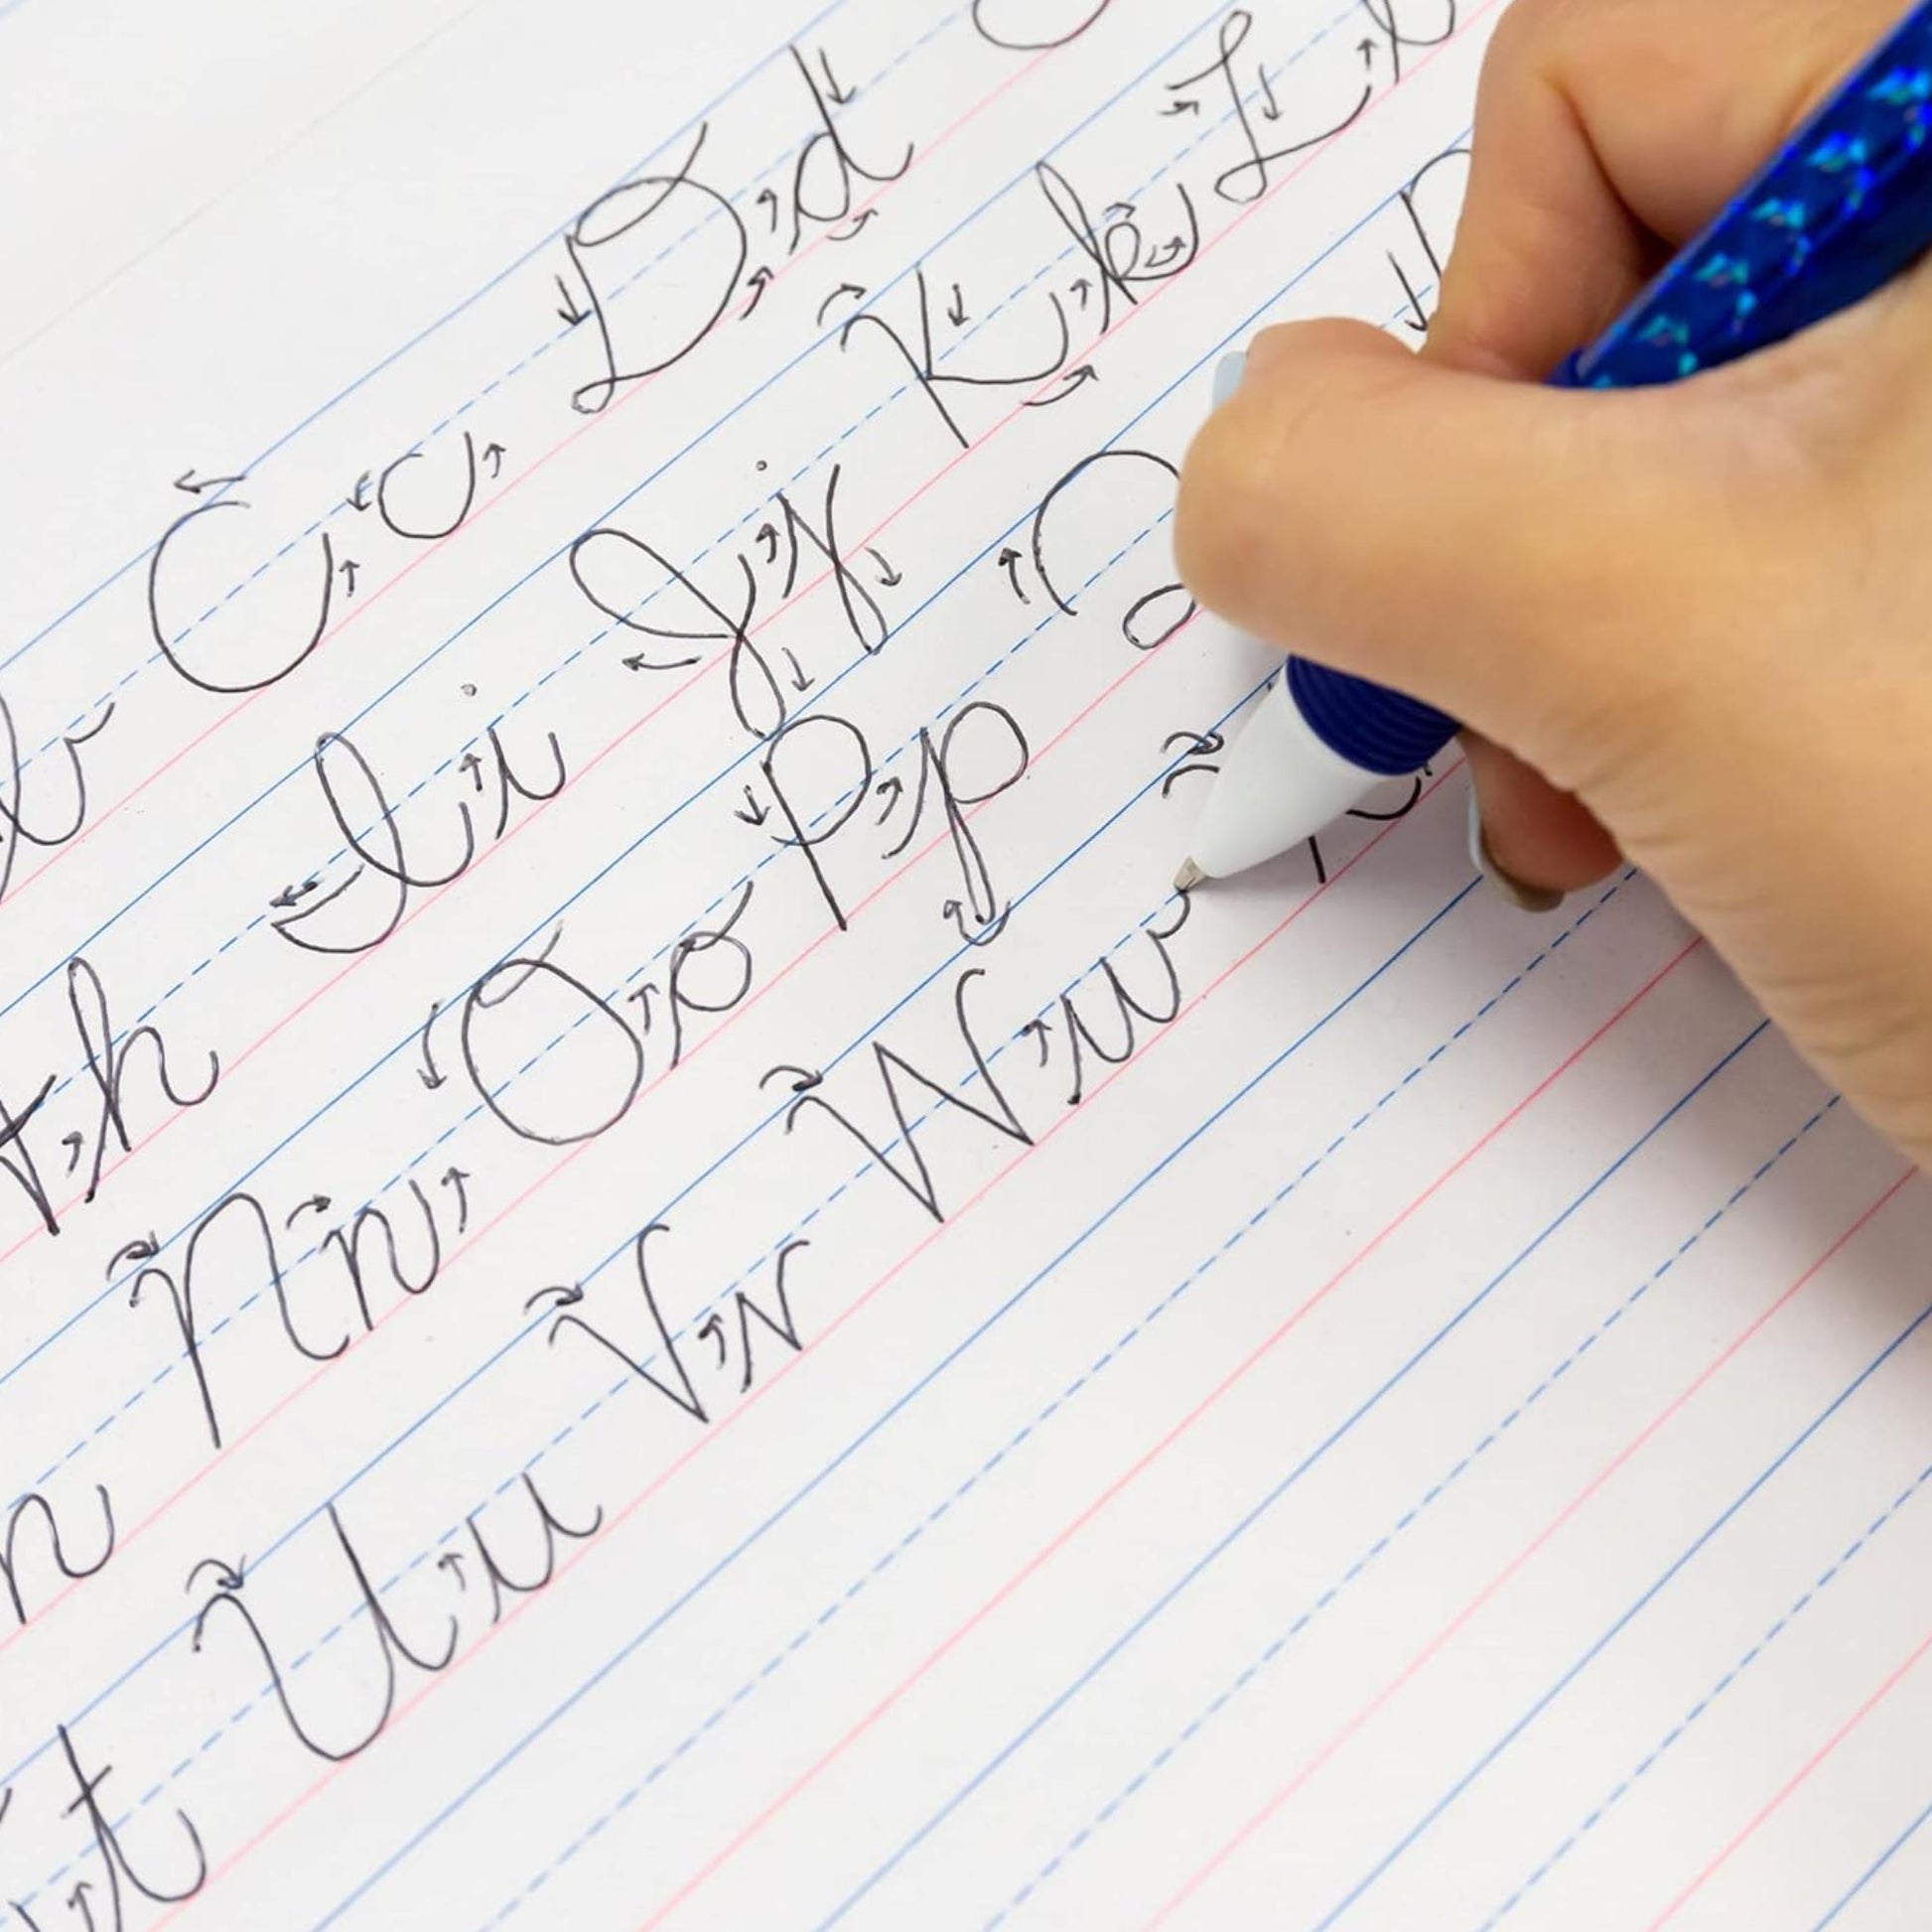 b C c D d
h I i J j K k L l
n N n O o P p
t U u V v W w